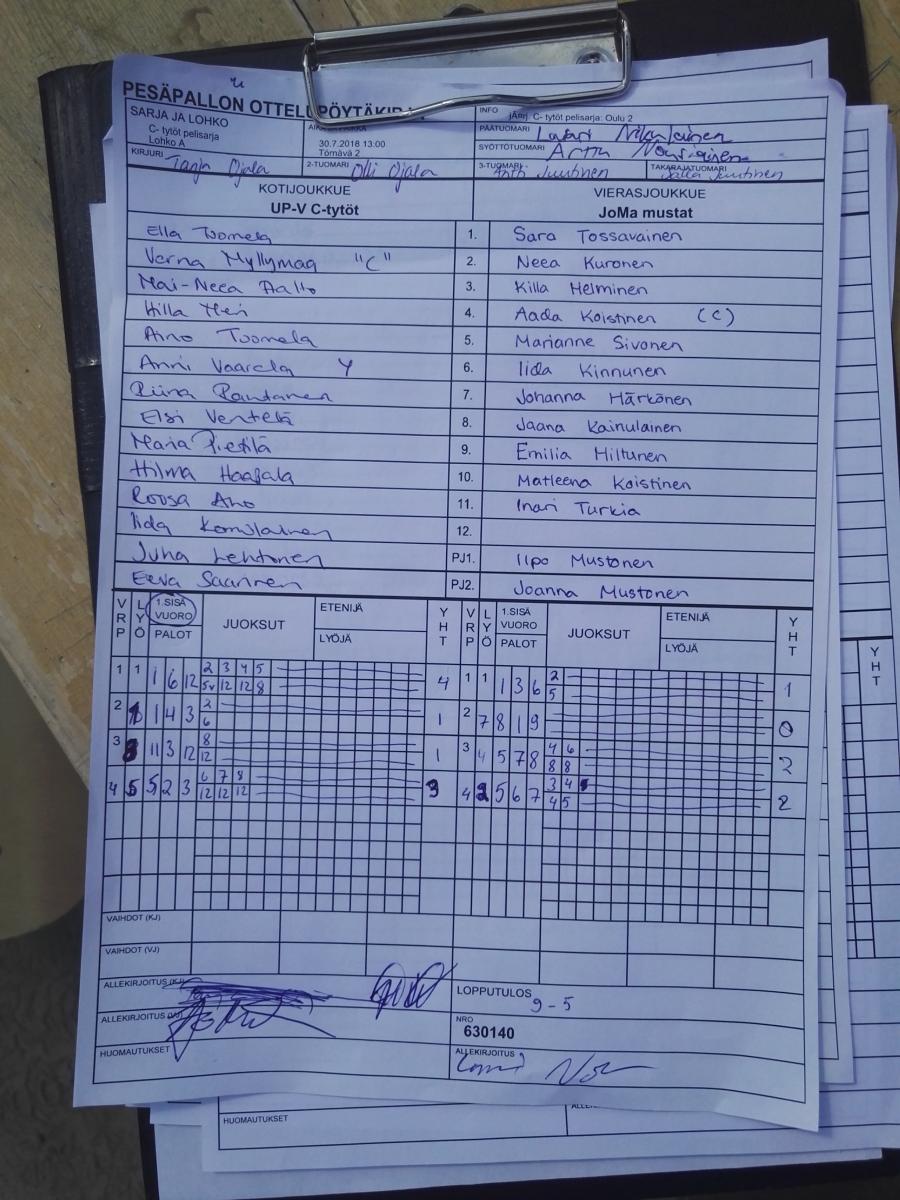 PESÄPALLON
SARJA JA LOHKO
C- tytöt pelisarja
Lohko A
30.7.2018 13:00
Törnävä 2
INFO
C- tytöt pelisarja: Oulu 2
PÄÄTUOMARI
SYÖTTÖTUOMARI Arttu
KIRJURI Tanja Ojala
2-TUOMARI Olli Ojala
3-TUOMARI Antti Juutinen
TAKARAJATUOMARI Juutinen
KOTIJOUKKUE
UP-V C-tytöt
VIERASJOUKKUE
JoMa mustat
Ella Tuomela 1. Sara Tossavainen
Verna Myllymaa "C" 2. Neea Kuronen
Mai-Neea Aalto 3. Killa Helminen
Hilla 4. Aada Koistinen (C)
Aino Tuomela 5. Marianne Sivonen
Anni Vaarela Y 6. Iida Kinnunen
Riina Rantanen 7. Johanna Härkönen
Elsi Ventelä 8. Jaana Kainulainen
Maria Pietilä 9. Emilia Hiltunen
Hilma Haapala 10. Matleena Koistinen
Roosa Aho 11. Inari Turkia
Iida Komulainen 12.
Juha Lehtonen PJ1. Ilpo Mustonen
Eeva Saarinen PJ2. Joanna Mustonen
VRP LYÖ 1.SISÄ VUORO PALOT JUOKSUT ETENIJÄ LYÖJÄ YHT VRP LYÖ 1.SISÄ VUORO PALOT JUOKSUT ETENIJÄ LYÖJÄ YHT
1 1 1 6 12 2 3 4 5 4 1 1 1 3 6 2 1
5v 12 12 8 5
2 1 4 3 2 1 2 7 8 1 9 0
6
3 8 11 3 12 8 1 3 4 5 7 8 4 6 2
12 8 8
4 5 5 2 3 6 7 8 3 4 2 5 6 7 3 4 2
12 12 12 4 5
VAIHDOT (KJ)
VAIHDOT (VJ)
ALLEKIRJOITUS (KJ)
LOPPUTULOS
9-5
ALLEKIRJOITUS (VJ)
NRO
630140
HUOMAUTUKSET
ALLEKIRJOITUS
YHT
HUOMAUTUKSET